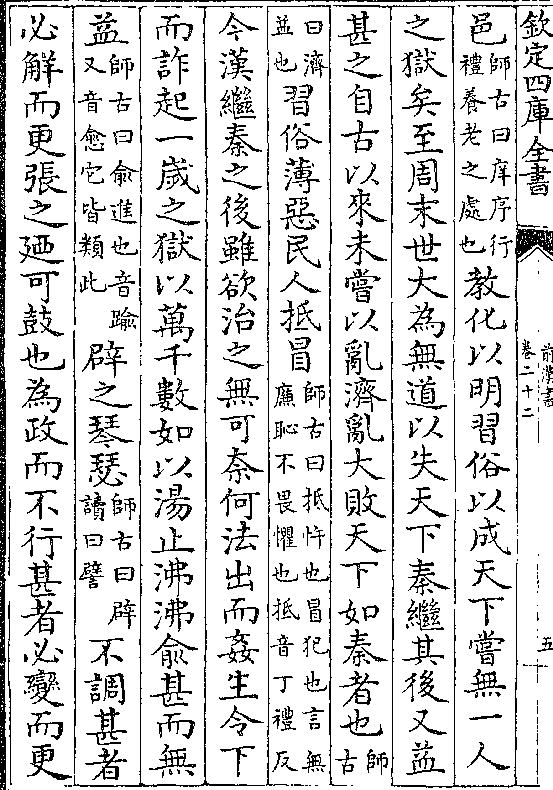 欽定四庫全書
前漢書
卷二十二
五
邑師古曰庠序行禮養老之處也教化以明習俗以成天下嘗無一人
之獄矣至周末世大為無道以失天下秦繼其後又益
甚之自古以來未嘗以亂濟亂大敗天下如秦者也師古
曰濟益也習俗薄惡民人抵冒師古曰抵忤也冒犯也言無廉恥不畏懼也抵音丁禮反
今漢繼秦之後雖欲治之無可奈何法出而姦生令下
而詐起一歲之獄以萬千數如以湯止沸沸俞甚而無
益師古曰俞進也音踰又音愈它皆類此辟之琴瑟師古曰辟讀曰譬不調甚者
必解而更張之廼可鼓也為政而不行甚者必變而更